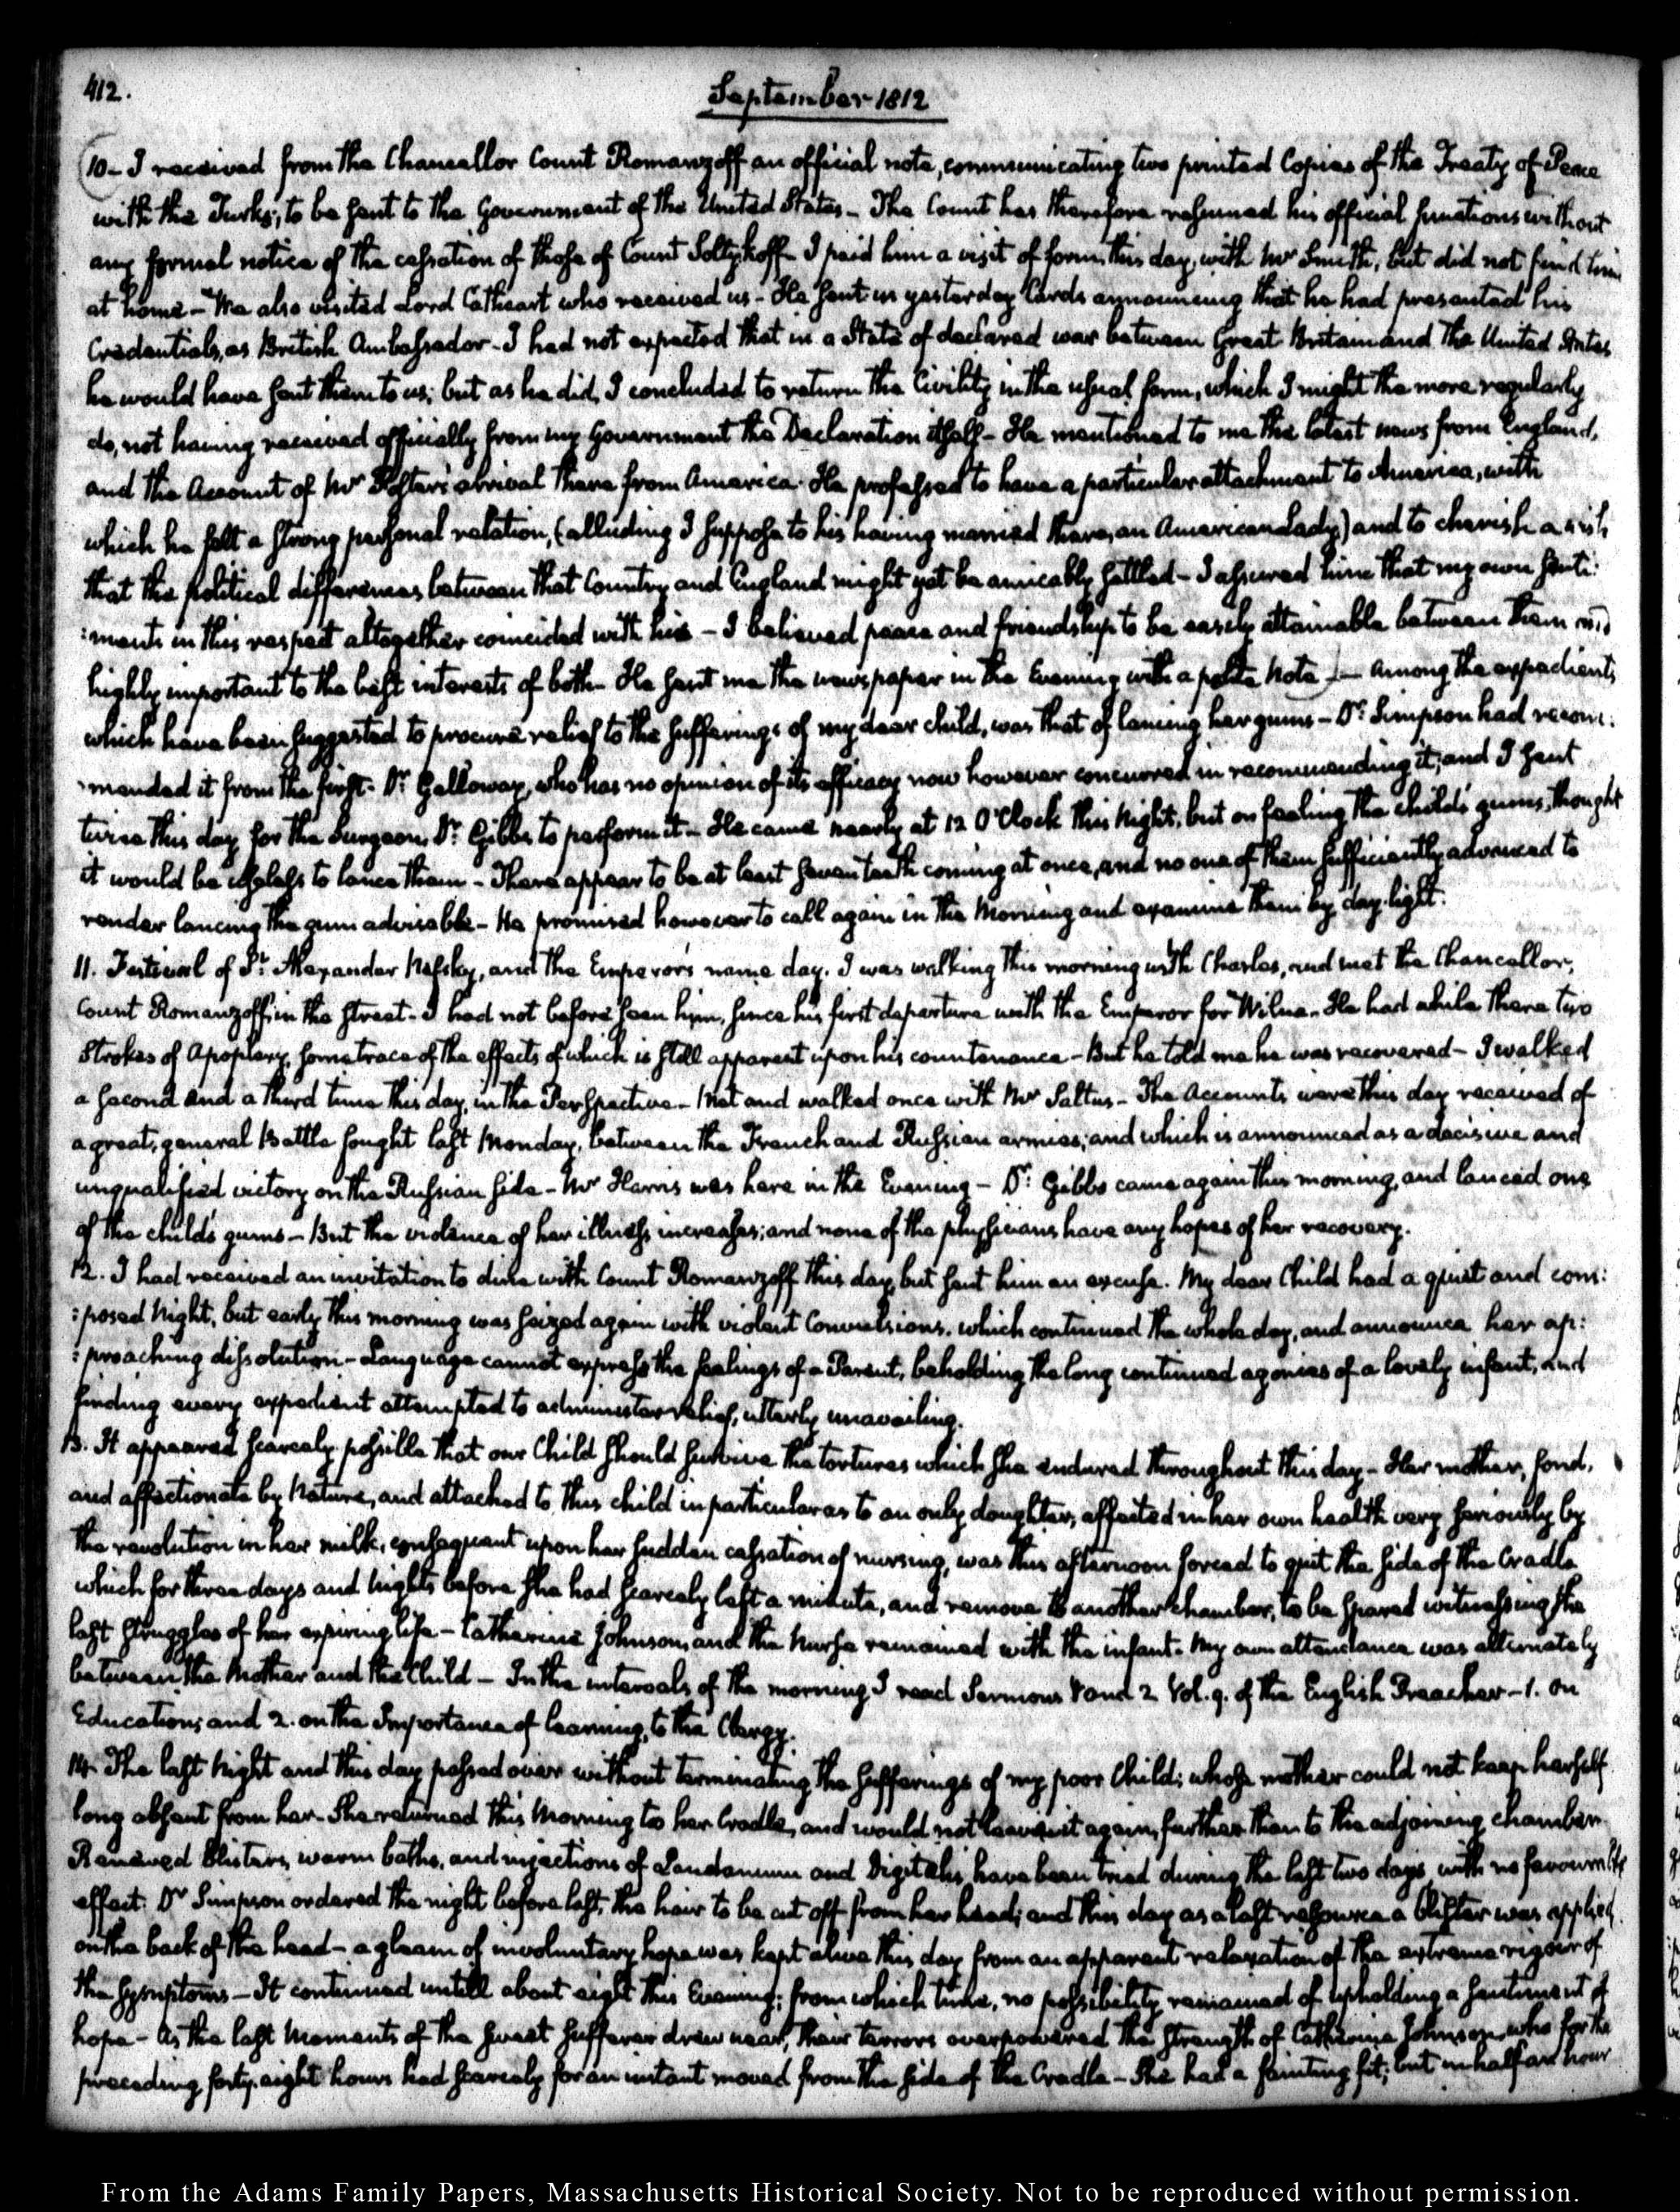 412.
September 1812
10- I received from the Chancellor Count Romanzoff an official note, communicating two printed Copies of the Treaty of Peace
with the Turks; to be sent to the Government of the United States - The Count has therefore resumed his official functions without
any formal notice of the cessation of those of Count Soltykoff - I paid him a visit of form, this day, with Mr Smith, but did not find him
at home - We also visited Lord Cathcart who received us - He sent us yesterday Cards announcing that he had presented his
Credentials, as British Ambassador - I had not expected that in a State of declared war between Great Britain and the United States
he would have sent them to us; but as he did, I concluded to return the Civility in the usual form, which I might the more regularly
do, not having received officially from my Government the Declaration itself - He mentioned to me the latest news from England,
and the Account of Mr Foster's arrival there from America. He professed to have a particular attachment to America, with
which he felt a strong personal relation, (alluding I suppose to his having married there, an American Lady) and to cherish a wish
that the political differences between that Country and England might yet be amicably settled - I assured him that my own senti:
:ments in this respect altogether coincided with his - I believed peace and friendship to be easily attainable between them and
highly important to the best interests of both - He sent me the newspaper in the Evening with a polite Note - Among the expedients
which have been suggested to procure relief to the sufferings of my dear child, was that of lancing her gums - Dr: Simpson had recom:
:mended it from the first. Dr. Galloway, who has no opinion of its efficacy now however concurred in recommending it; and I sent
twice this day for the Surgeon, Dr. Gibbs to perform it - He came nearly at 12 O'Clock this Night, but on feeling the child's gums, thought
it would be useless to lance them - There appear to be at least seven teeth coming at once, and no one of them sufficiently advanced to
render lancing the gum adviseable - He promised however to call again in the Morning and examine them by day-light.
11. Festival of St: Alexander Nefsky, and the Emperor's name day. I was walking this morning with Charles, and met the Chancellor,
Count Romanzoff, in the street - I had not before seen him, since his first departure with the Emperor for Wilna - He had while there two
Strokes of Apoplexy, some trace of the effects of which is still apparent upon his countenance - But he told me he was recovered - I walked
a second and a third time this day, in the Perspective - Met and walked once with Mr Saltus - The Accounts were this day received of
a great, general Battle fought last Monday, between the French and Russian armies; and which is announced as a decisive and
unqualified victory on the Russian side - Mr Harris was here in the Evening - Dr: Gibbs came again this morning, and lanced one
of the child's gums - But the violence of her illness increases; and none of the physicians have any hopes of her recovery.
12. I had received an invitation to dine with Count Romanzoff this day, but sent him an excuse. My dear Child had a quiet and com:
:posed Night, but early this morning was seized again with violent Convulsions, which continued the whole day, and announce her ap:
:proaching dissolution - Language cannot express the feelings of a Parent, beholding the long continued agonies of a lovely infant, and
finding every expedient attempted to administer relief, utterly unavailing.
13. It appeared scarcely possible that our Child should survive the tortures which she endured throughout this day - Her mother, fond,
and affectionate by Nature, and attached to this child in particular as to an only daughter, affected in her own health very seriously by
the revolution in her milk, consequent upon her sudden cessation of nursing, was this afternoon forced to quit the side of the Cradle
which for three days and nights before she had scarcely left a minute, and remove to another chamber, to be spared witnessing the
last struggles of her expiring life - Catherine Johnson, and the Nurse remained with the infant. My own attendance was alternately
between the Mother and the Child - In the intervals of the morning I read Sermons 1 and 2 Vol. 9. of the English Preacher - 1. on
Education; and 2. on the Importance of learning, to the Clergy.
14. The last Night and this day passed over without terminating the sufferings of my poor Child; whose mother could not keep herself
long absent from her - She returned this Morning to her Cradle, and would not leave it again, further than to the adjoining chamber.
Renewed blisters, warm baths, and injections of Laudanum and Digitalis, have been tried during the last two days, with no favourable
effect. Dr Simpson ordered the night before last, the hair to be cut off from her head; and this day as a last resource a blister was applied
on the back of the head - a gleam of involuntary hope was kept alive this day from an apparent relaxation of the extreme rigour of
the symptoms - It continued untill about eight this Evening; from which time, no possibility remained of upholding a sentiment of
hope - As the last Moments of the sweet sufferer drew near, their terrors overpowered the strength of Catherine Johnson, who for the
preceding forty-eight hours had scarcely for an instant moved from the side of the Cradle - She had a fainting fit; but in half an hour
From the Adams Family Papers, Massachusetts Historical Society. Not to be reproduced without permission.